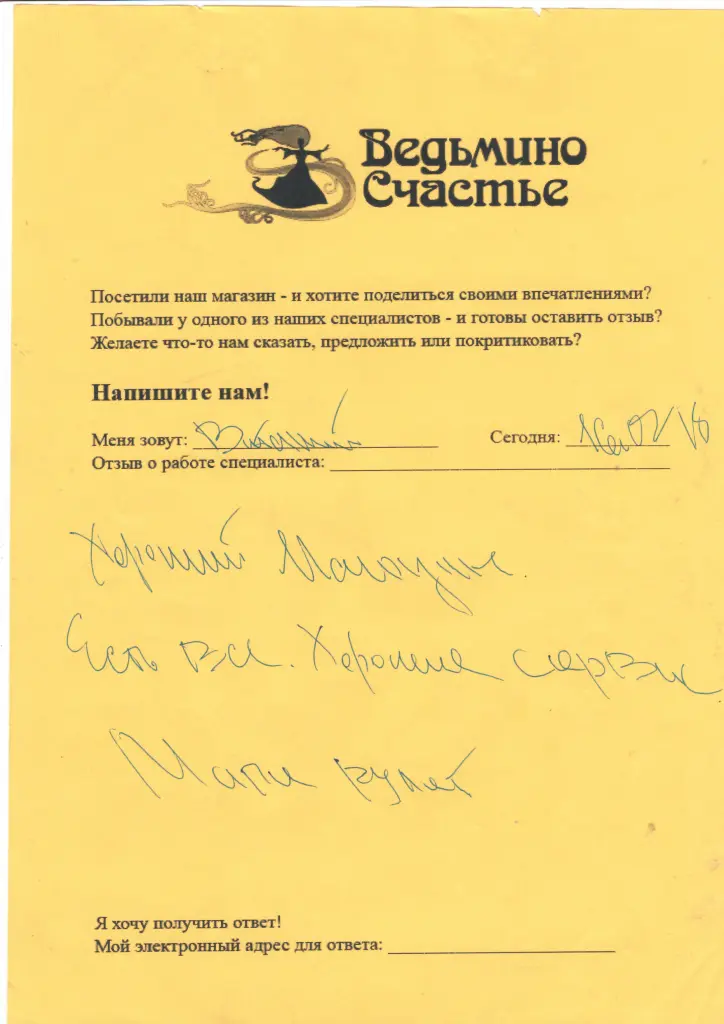 Ведьмино
Счастье
Посетили наш магазин - и хотите поделиться своими впечатлениями?
Побывали у одного из наших специалистов - и готовы оставить отзыв?
Желаете что-то нам сказать, предложить или покритиковать?
Напишите нам!
Меня зовут: Виталий Сегодня:
Отзыв о работе специалиста:
Хороший Магазин.
Есть все. Хороший сервис
Я хочу получить ответ!
Мой электронный адрес для ответа: